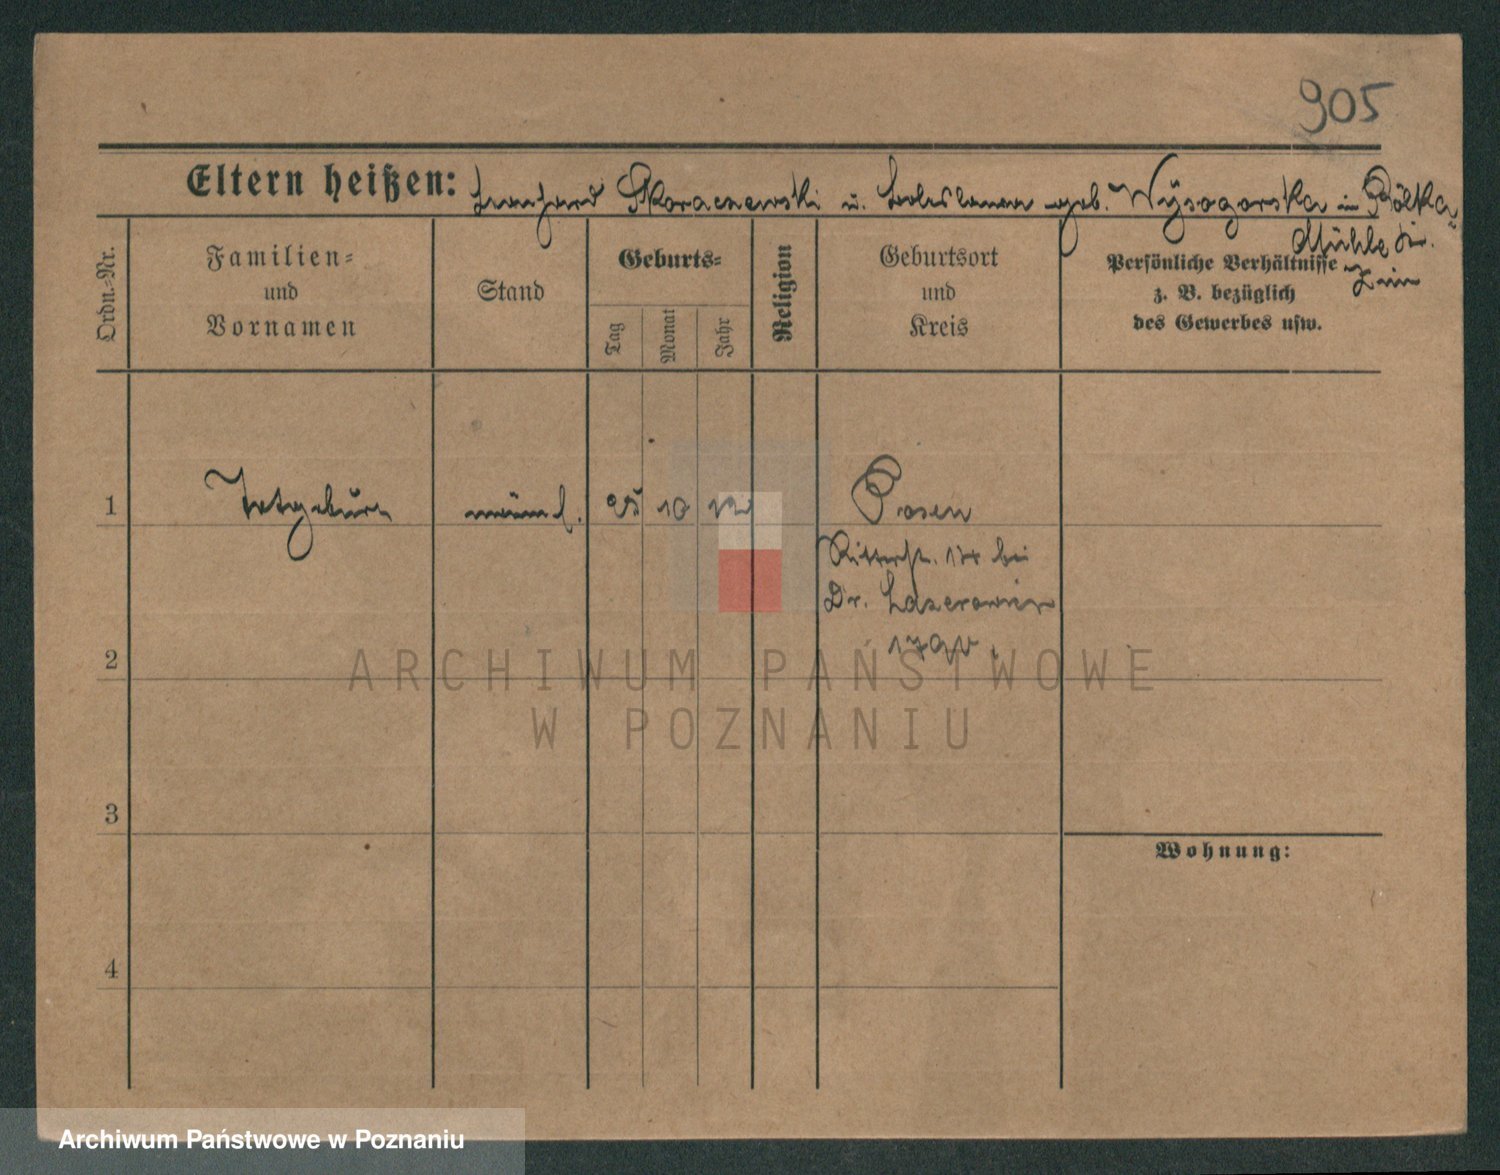 905
Eltern heißen: Skoraczewski u. Boleslawa geb. Wysogorska in Bölka-
Mühle Kr.
Znin
Ordn.-Nr.
Familien-
und
Vornamen
Stand
Geburts-
Tag
Monat
Jahr
Religion
Geburtsort
und
Kreis
Persönliche Verhältnisse
z. B. bezüglich
des Gewerbes usw.
1 Totgeburt männl. 25 10 Posen
Ritterstr. bei
Dr.
2
3
Wohnung:
4
ARCHIWUM PAŃSTWOWE
W POZNANIU
Archiwum Państwowe w Poznaniu